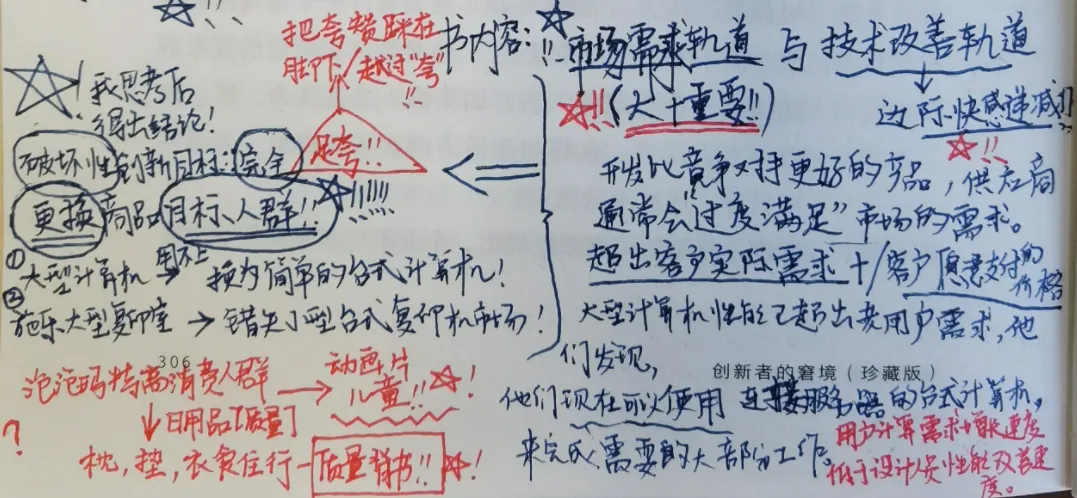 把夸赞踩在
脚下/越过"夸"!!
书内容:!!市场需求轨道 与 技术改善轨道
!!!(大十重要!!)
边际快感递减
!!
!我思考后
得出结论!
足夸!!
破坏性创新目标:完全
更换商品目标人群!!!!!!!
开发比竞争对手更好的产品,供应商
通常会"过度满足"市场的需求。
超出客户实际需求+/客户愿意支付的
价格
①大型计算机 用不上→ 换为简单的台式计算机!
②施乐大型复印室→错失小型台式复印机市场!
大型计算机性能已超出老用户需求,他
们发现,
他们现在可以使用连接服务器的台式计算机,
来完成需要的大部分工作。
用户计算需求增长速度
低于设计人员性能改善速
度。
306
创新者的窘境(珍藏版)
泡泡玛特高消费人群→动画片
儿童!!!
↓日用品[质量]
?
枕,垫,衣食住行—质量背书!!!